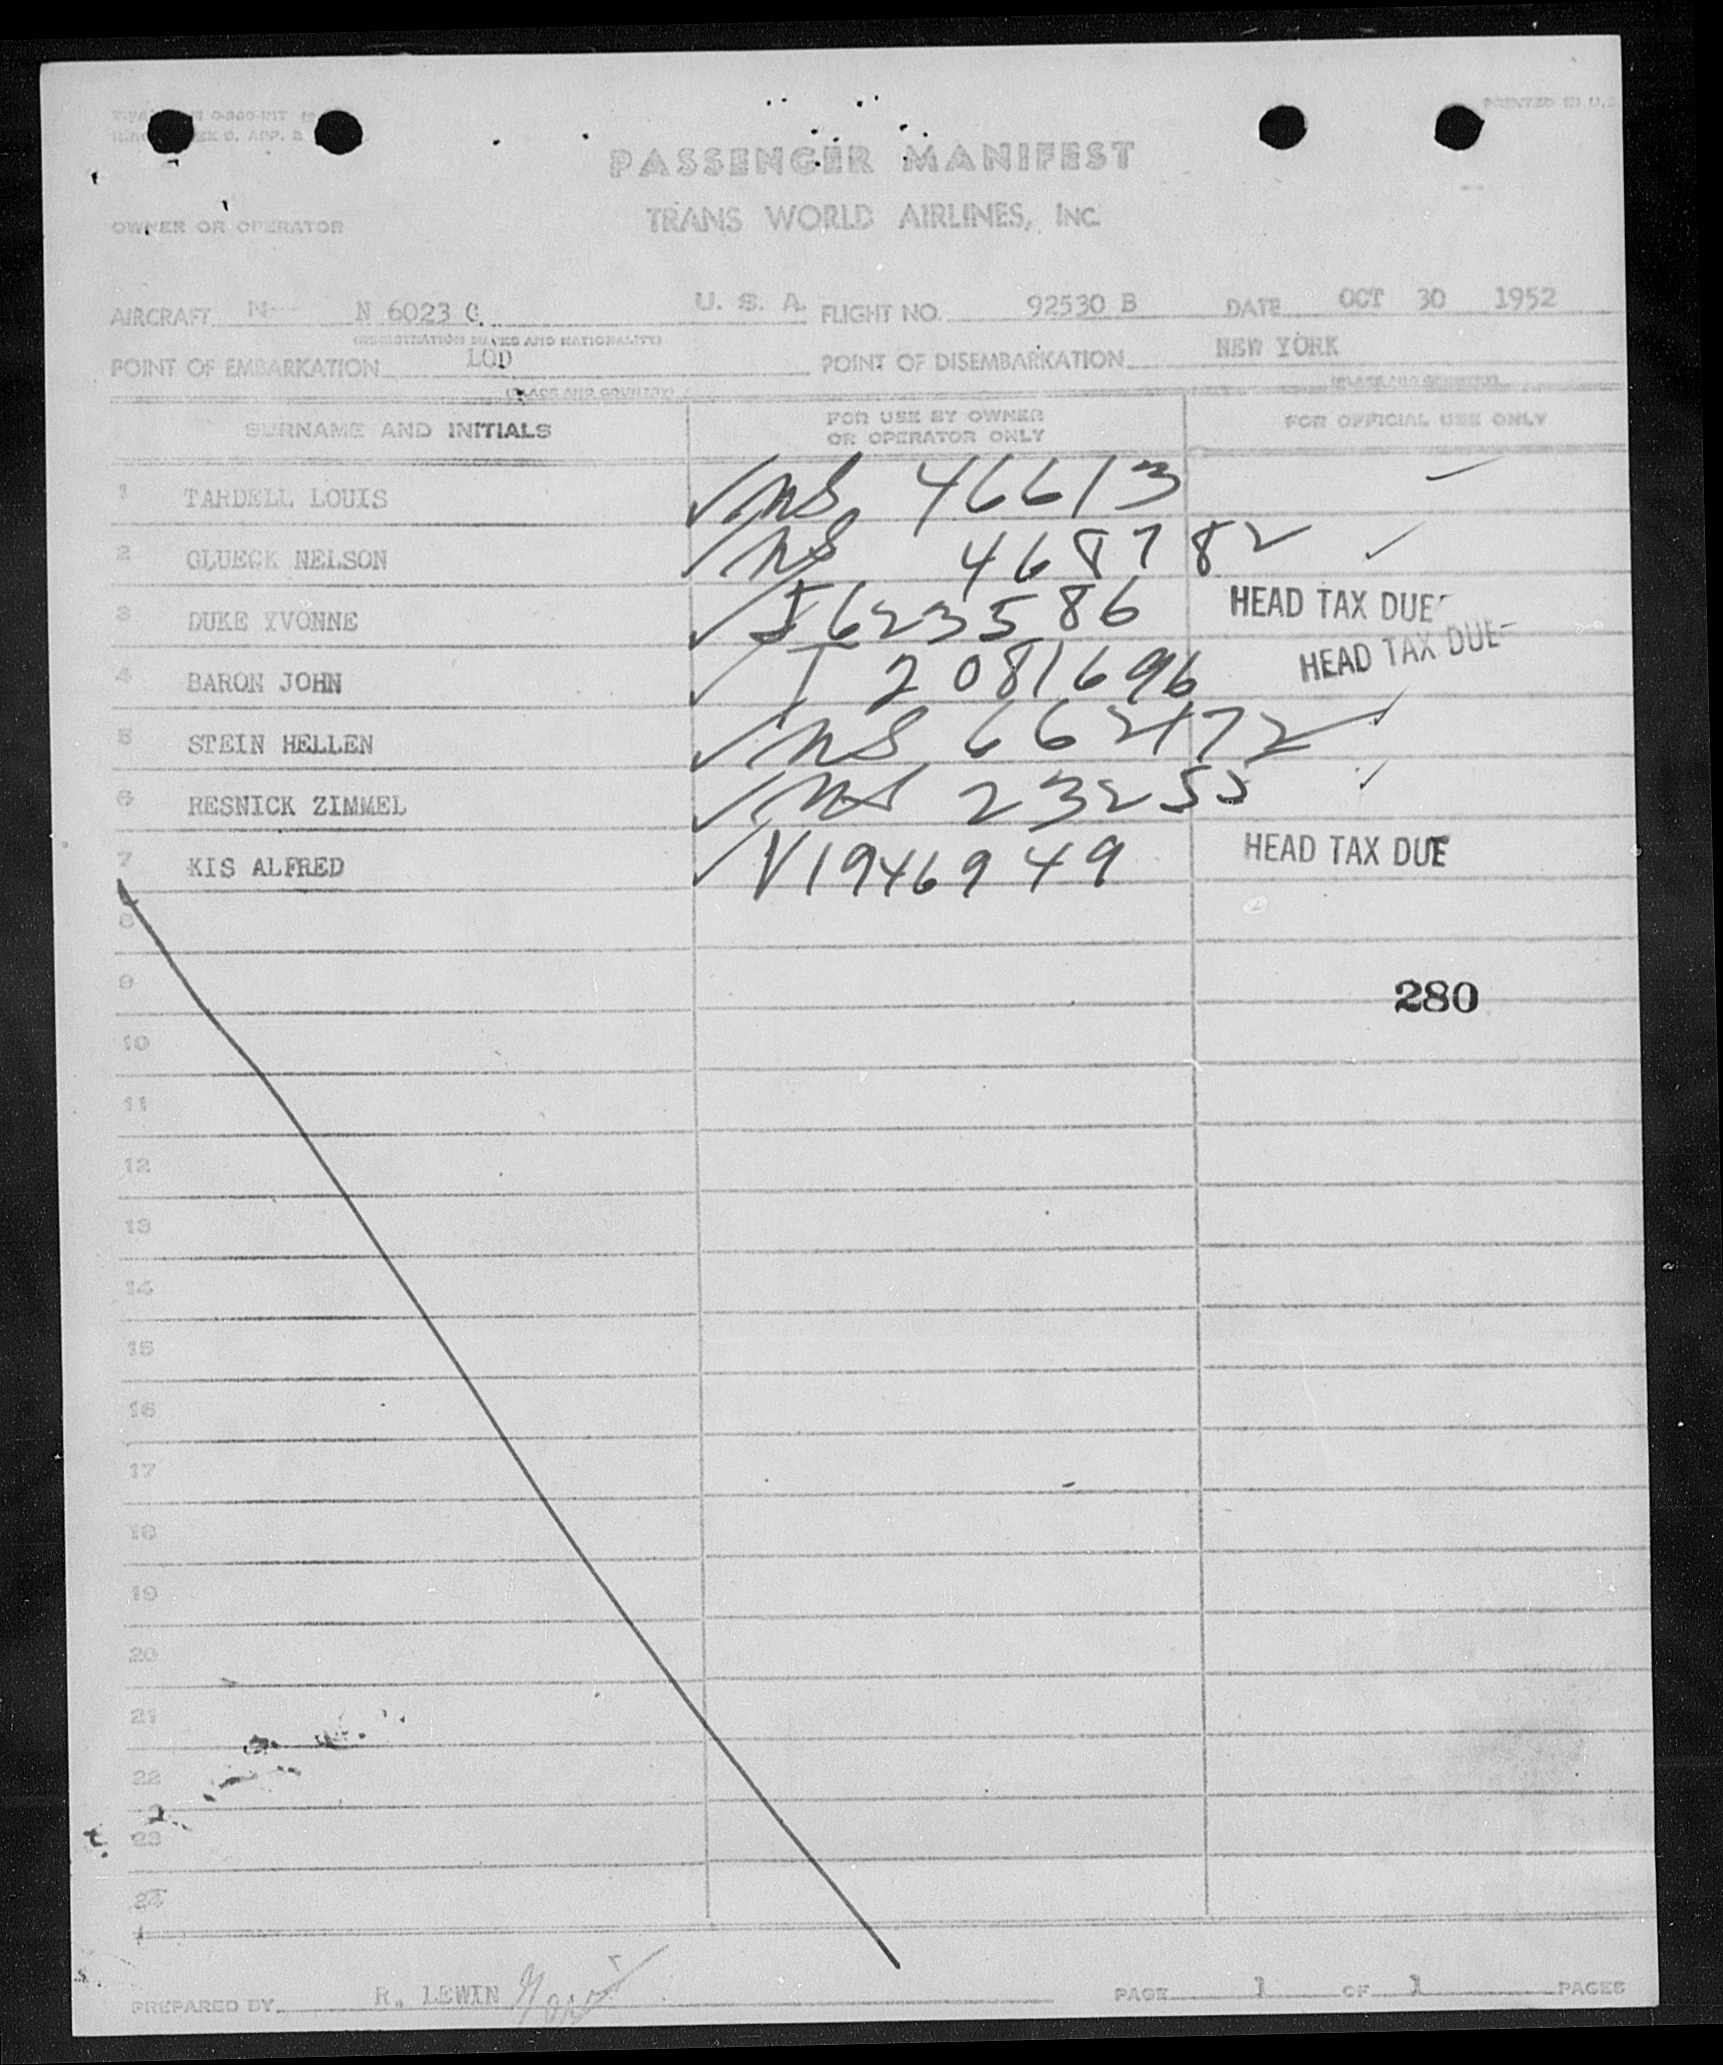 PRINTED IN U.S.
PASSENGER MANIFEST
TRANS WORLD AIRLINES, INC.
OWNER OR OPERATOR
AIRCRAFT N-- N 6023 C U. S. A. FLIGHT NO. 92530 B DATE OCT 30 1952
(REGISTRATION MARKS AND NATIONALITY)
POINT OF EMBARKATION LOD POINT OF DISEMBARKATION NEW YORK
(PLACE AND COUNTRY) (PLACE AND COUNTRY)
SURNAME AND INITIALS FOR USE BY OWNER OR OPERATOR ONLY FOR OFFICIAL USE ONLY
1 TARDELL LOUIS 46613
2 GLUECK NELSON 468782
3 DUKE YVONNE I 623586 HEAD TAX DUE
4 BARON JOHN T 2081696 HEAD TAX DUE
5 STEIN HELLEN 662472
6 RESNICK ZIMMEL 23255
7 KIS ALFRED V1946949 HEAD TAX DUE
8
9 280
10
11
12
13
14
15
16
17
18
19
20
21
22
23
24
PREPARED BY R. LEWIN PAGE 1 OF 1 PAGES